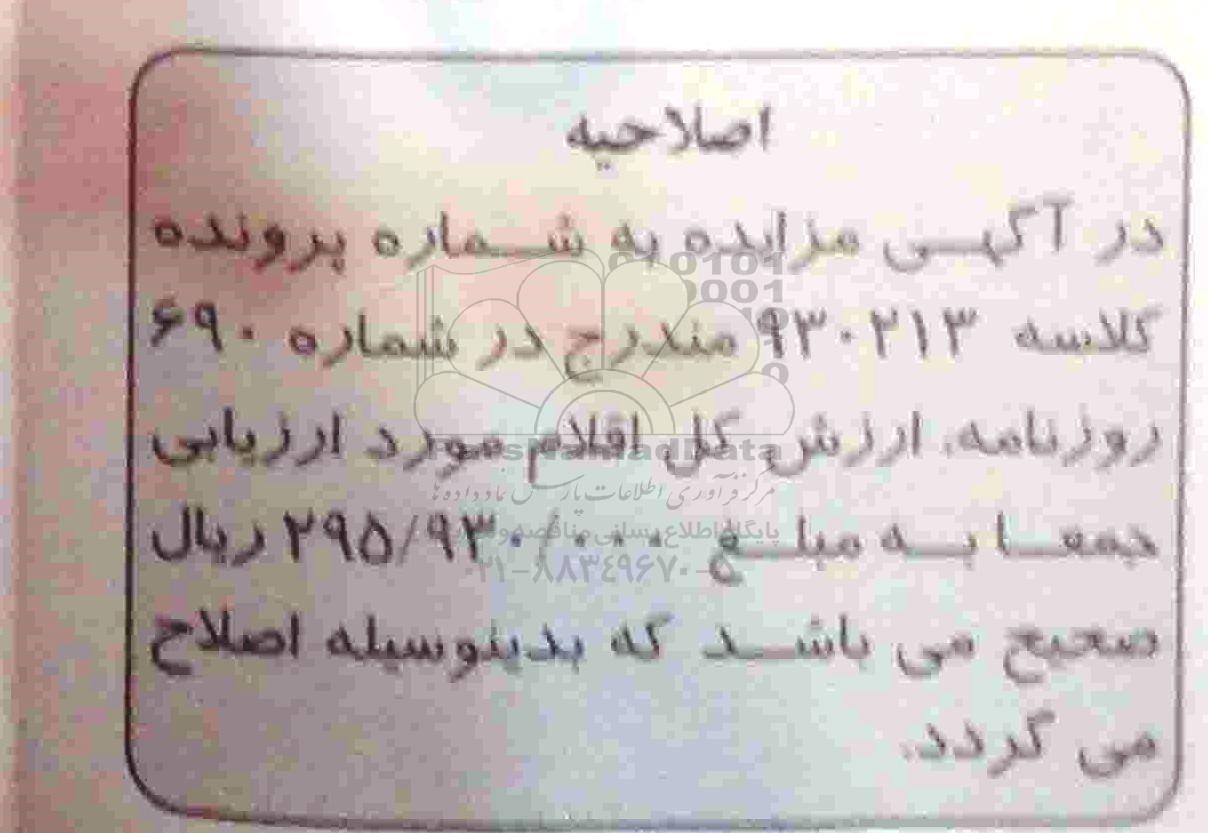 اصلاحیه
در آگهی مزایده به شماره پرونده
کلاسه ۹۳۰۲۱۳ مندرج در شماره ۶۹۰
روزنامه، ارزش کل اقلام مورد ارزیابی
جمعا به مبلغ ۲۹۵/۹۳۰/۰۰۰ ریال
صحیح می باشد که بدینوسیله اصلاح
می گردد.
مرکز فرآوری اطلاعات پارس نماد داده ها
پایگاه اطلاع رسانی مناقصه و
۰۲۱-۸۸۳۴۹۶۷۰